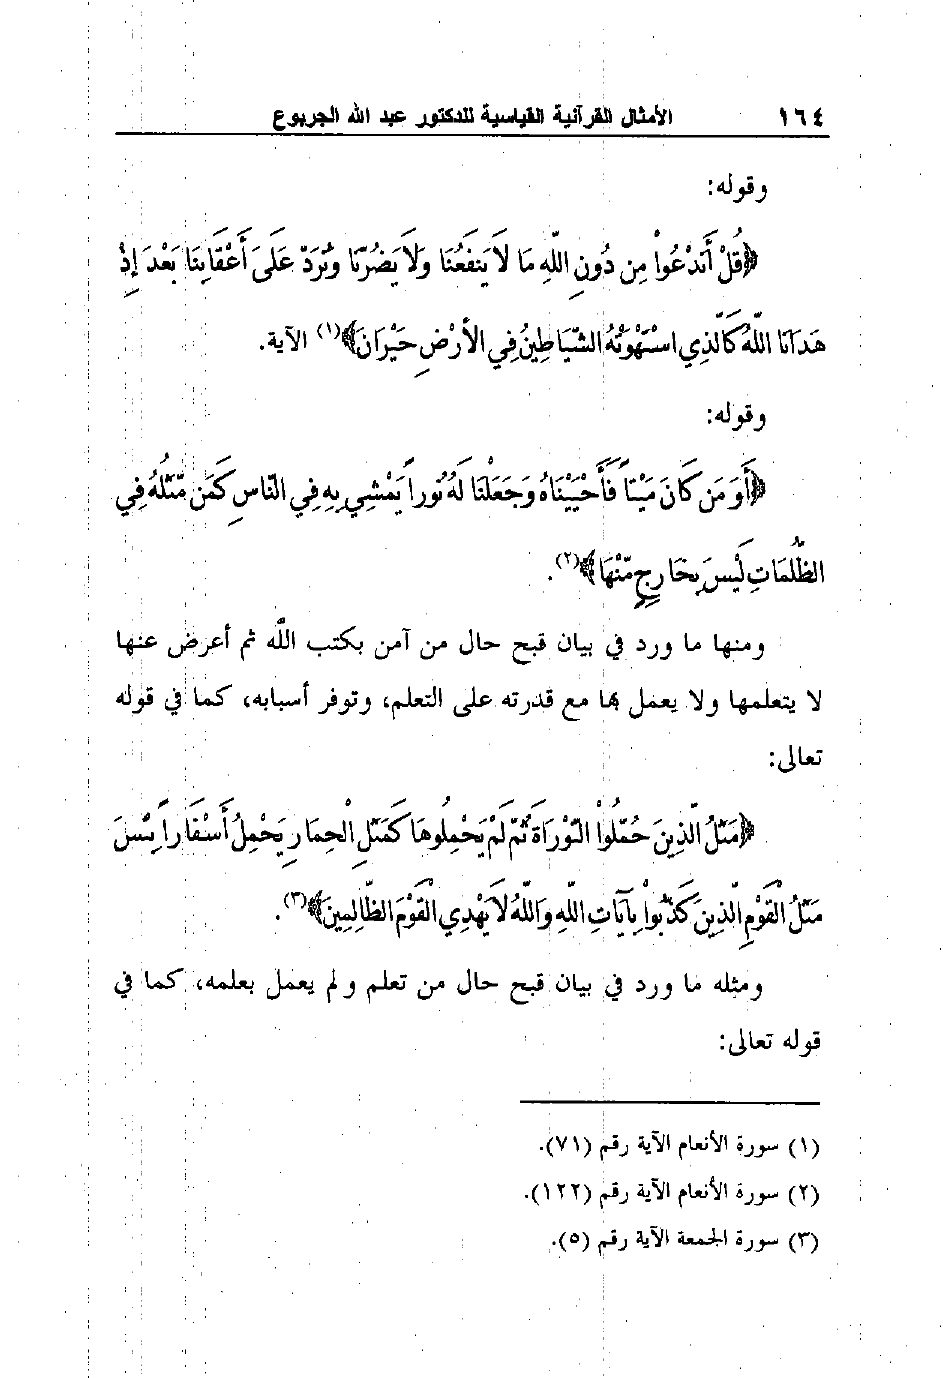 ١٦٤ الأمثال القرآنية القياسية للدكتور عبد الله الجربوع
وقوله:
﴿قُلْ أَنَدْعُواْ مِن دُونِ اللَّهِ مَا لاَ يَنفَعُنَا وَلاَ يَضُرُّنَا وَنُرَدُّ عَلَىَ أَعْقَابِنَا بَعْدَ إِذْ
هَدَانَا اللَّهُ كَالَّذِي اسْتَهْوَتْهُ الشَّيَاطِينُ فِي الأَرْضِ حَيْرَانَ﴾(١) الآية.
وقوله:
﴿أَوَ مَن كَانَ مَيْتاً فَأَحْيَيْنَاهُ وَجَعَلْنَا لَهُ نُوراً يَمْشِي بِهِ فِي النَّاسِ كَمَن مَّثَلُهُ فِي
الظُّلُمَاتِ لَيْسَ بِخَارِجٍ مِّنْهَا﴾(٢).
ومنها ما ورد في بيان قبح حال من آمن بكتب الله ثم أعرض عنها
لا يتعلمها ولا يعمل بها مع قدرته على التعلم، وتوفر أسبابه، كما في قوله
تعالى:
﴿مَثَلُ الَّذِينَ حُمِّلُواْ التَّوْرَاةَ ثُمَّ لَمْ يَحْمِلُوهَا كَمَثَلِ الْحِمَارِ يَحْمِلُ أَسْفَاراً بِئْسَ
مَثَلُ الْقَوْمِ الَّذِينَ كَذَّبُواْ بِآيَاتِ اللَّهِ وَاللَّهُ لاَ يَهْدِي الْقَوْمَ الظَّالِمِينَ﴾(٣).
ومثله ما ورد في بيان قبح حال من تعلم ولم يعمل بعلمه، كما في
قوله تعالى:
(١) سورة الأنعام الآية رقم (٧١).
(٢) سورة الأنعام الآية رقم (١٢٢).
(٣) سورة الجمعة الآية رقم (٥).